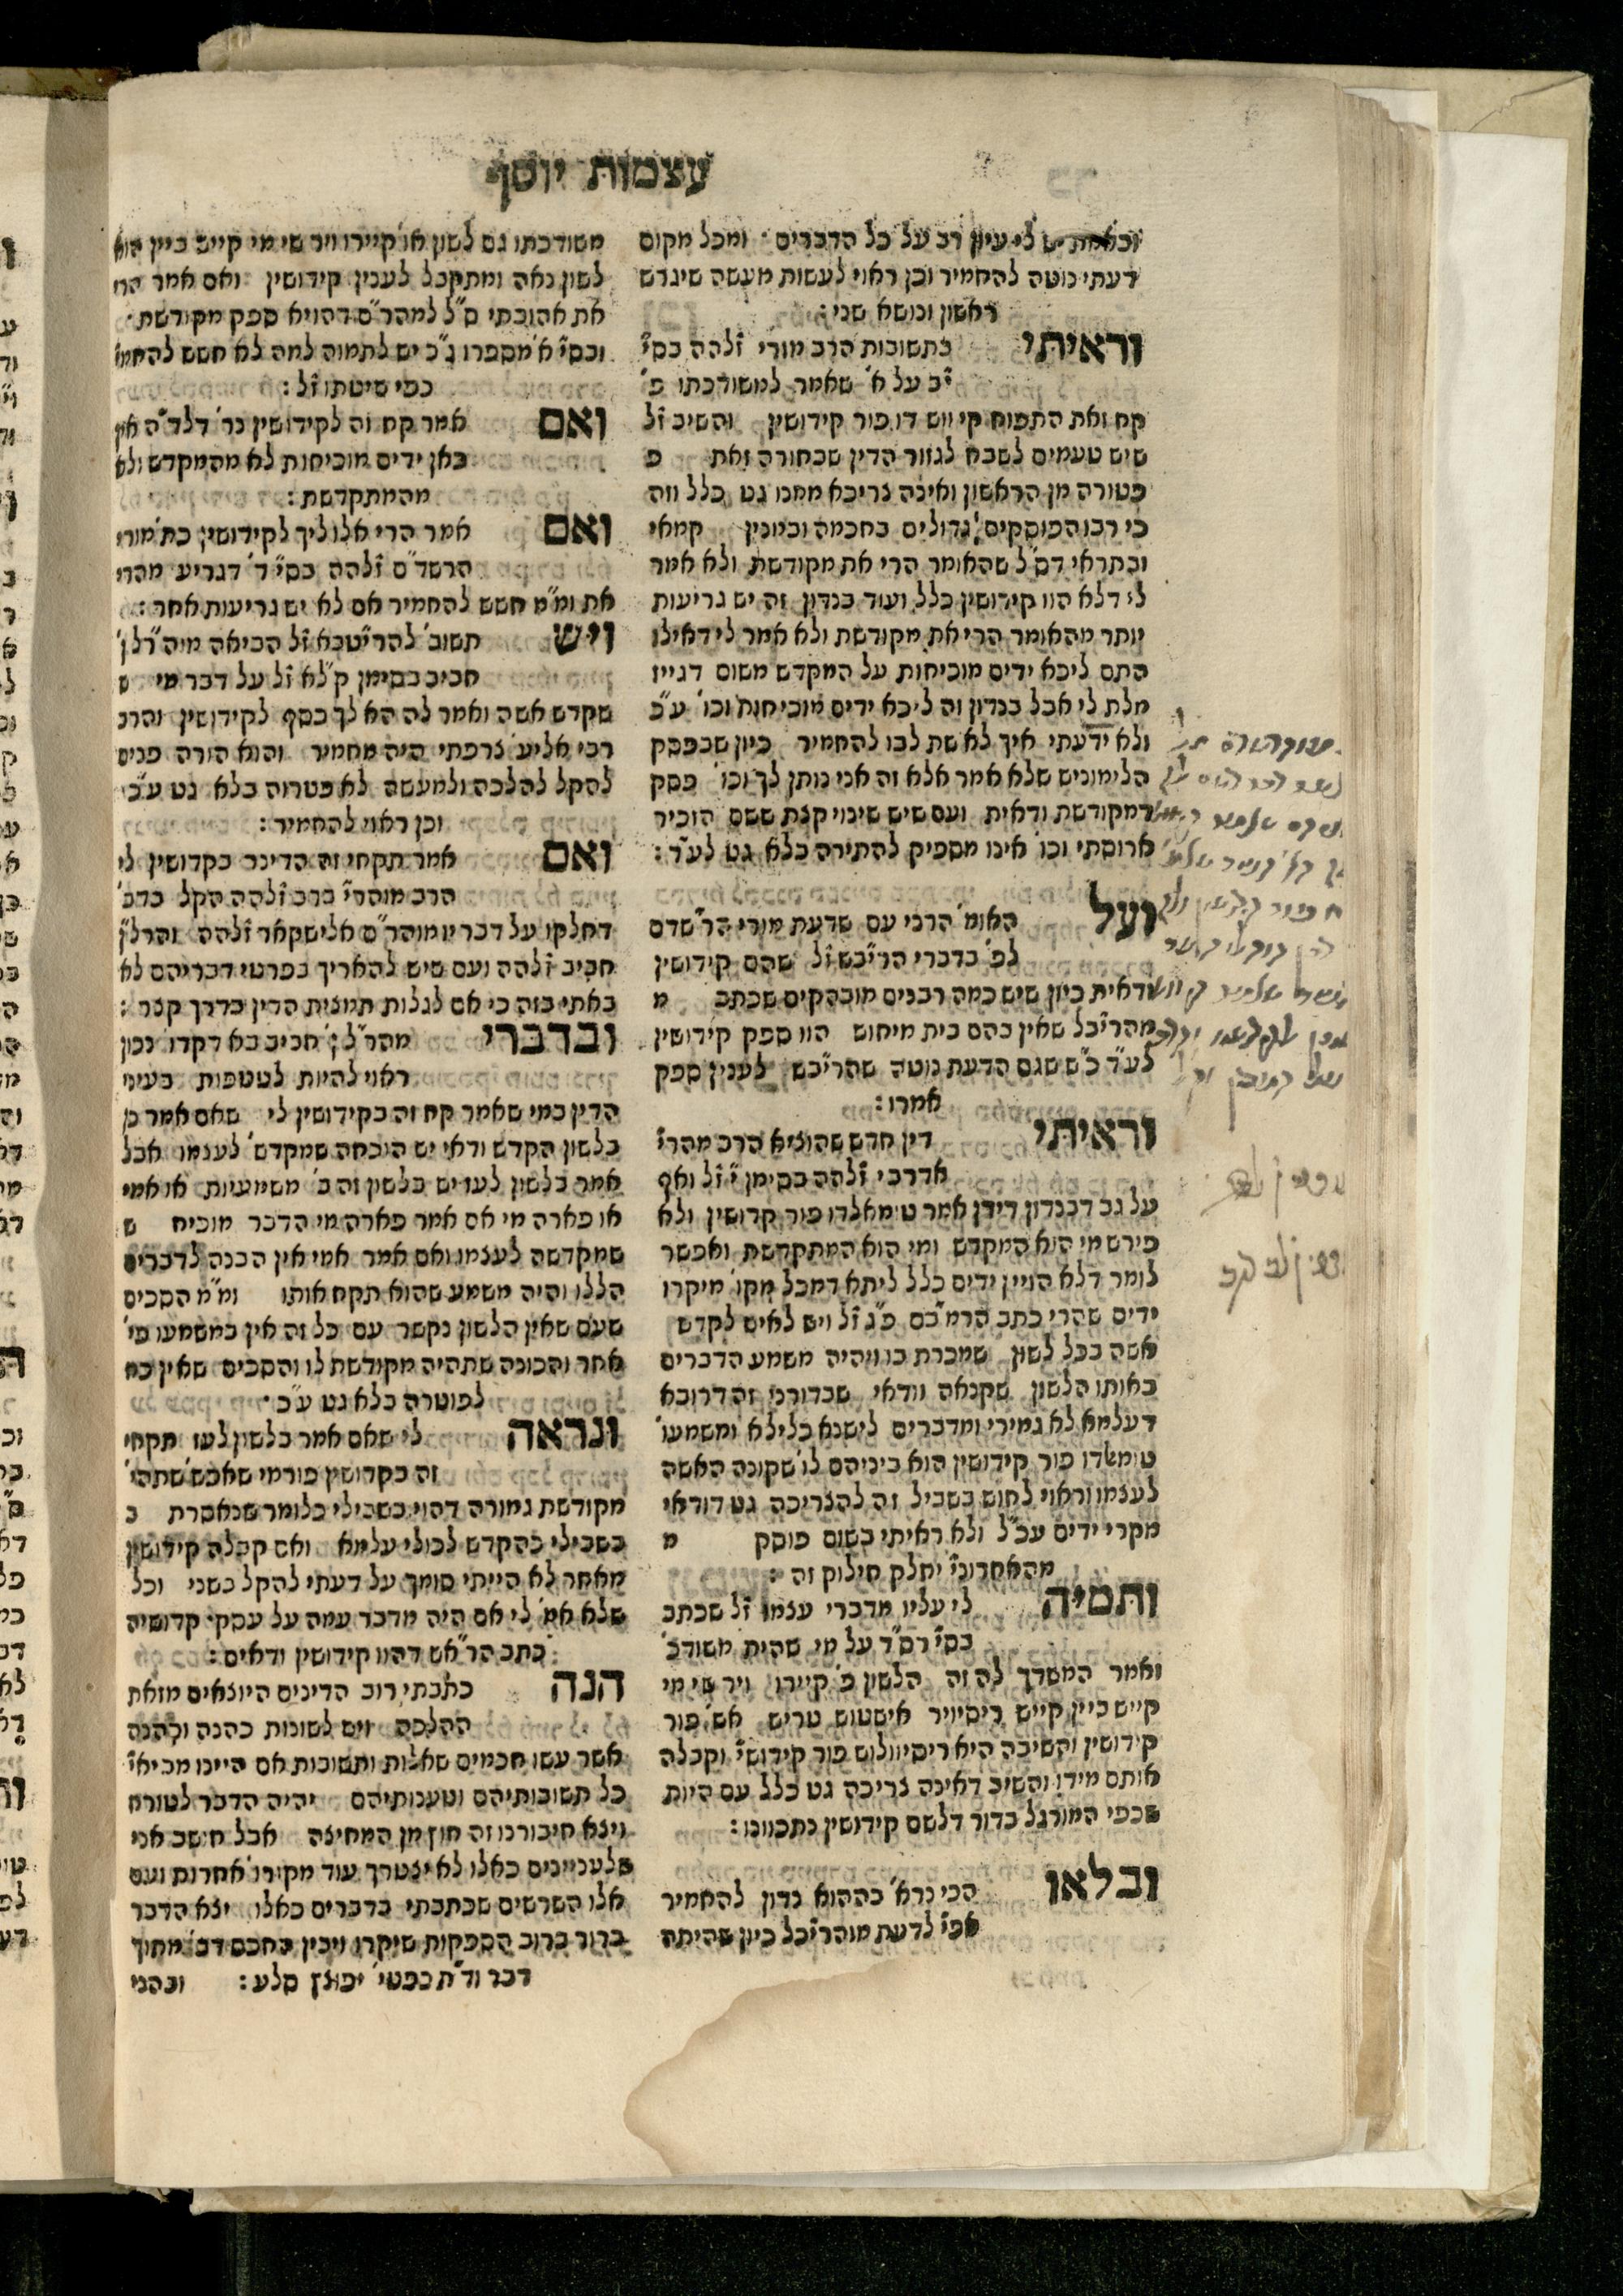 עצמות יוסף
ובאמת יש לי עיון רב על כל הדברים ומכל מקום
דעתי נוטה להחמיר וכן ראוי לעשות מעשה שיגרש
ראשון ונושא שני :
וראיתי בתשובות הרב מורי ז"להה בסי'
י"ב על א' שאמר למשודכתו פ'
קח זאת התפוח קי ווש דו פור קידושין והשיב ז"ל
שיש טעמים לשבח לגזור הדין שבחורה זאת פ
פטורה מן הראשון ואינה צריכא ממנו גט כלל וזה
כי רבו הפוסקים גדולים בחכמה ובמנין קמאי
ובתראי דס"ל שהאומר הרי את מקודשת ולא אמר
לי דלא הוו קידושין כלל ועוד בנדון זה יש גריעות
יותר מהאומר הרי את מקודשת ולא אמר לי דאילו
התם ליכא ידים מוכיחות על המקדש משום דגייז
מלת לי אבל בנדון זה ליכא ידים מוכיחות וכו' ע"כ
ולא ידעתי איך לא שת לבו להחמיר כיון שבפסק
הלימוניש שלא אמר אלא זה אני נותן לך וכו' פסק
דמקודשת ודאית ועם שיש שינוי קצת ששם הזכיר
ארוסתי וכו' אינו מספיק להתירה בלא גט לע"ד :
ועל האומ' הרבי עם שדעת מורי הר"שדם
לפ' בדברי הרי"בש ז"ל שהם קידושין
ודאית כיון שיש כמה רבנים מובהקים שכתב מ
מהרי"בל שאין בהם בית מיחוש הוו ספק קידושין
לע"ד כ"ש שגם הדעת נוטה שהרי"בש לענין ספק
אמרו :
וראיתי דין חדש שהוציא הרב מהר"י
אדרבי ז"להה בסימן י' ז"ל ואף
על גב דבנדון דידן אמר טומאלדו פור קדושין ולא
פירש מי הוא המקדש ומי הוא המתקדשת ואפשר
לומר דלא הויין ידים כלל ליתא דמכל מקו' מיקרו
ידים שהרי כתב הרמ"בם פ"ג ז"ל ויש לאיש לקדש
אשה בכל לשון שמכרת בו ויהיה משמע הדברים
באותו הלשון שקנאה וודאי שבדורנו זה דרובא
דעלמא לא גמירי ומדברים לישנא קלילא ומשמעו'
טומאלדו פור קידושין הוא ביניהם לו' שקונה האשה
לעצמו וראוי לחוש בשביל זה להצריכה גט דודאי
מקרי ידים עכ"ל ולא ראיתי בשום פוסק מ
מהאחרוני' יחלק חילוק זה :
ותמיה לי עליו מדברי עצמו ז"ל שכתב
בסי' רס"ד על מי שהית משודכ'
ואמר המשדך לה זה הלשון פ' קיירו ויר שי מי
קייש ביין קייש ריסיויר איסטוש טריש אש' פור
קידושין והשיבה היא ריסיוולוש פור קידושי' וקבלה
אותם מידו והשיב דאינה צריכה גט כלל עם היות
שכפי המורגל בדור דלשם קידושין נתכוונו :
ובלאו הכי נרא' בההוא נדון להחמיר
אפי' לדעת מוהרי"בל כיון שהיתה
משודכתו גם לשון או' קיירו ויר שי מי קייש ביין הוא
לשון נאה ומתקבל לענין קידושין ואם אמר הרי
את אהובתי ס"ל למהר"ם דהויא ספק מקודשת
ובסי' א' מספרו ג"כ יש לתמוה למה לא חשש להחמי'
כפי שיטתו ז"ל :
ואם אמר קח זה לקידושין נר' דלד"ה אין
כאן ידים מוכיחות לא מהמקדש ולא
מהמתקדשת :
ואם אמר הרי אלו ליך לקידושין כת' מורי
הרשד"ם ז"להה בסי' ד' דגריע מהרי
את ומ"מ חשש להחמיר אם לא יש גריעות אחר :
ויש תשוב' להריטבא ז"ל הביאה מיה"רלן'
חביב בסימן ק"לא ז"ל על דבר מי ש
שקדש אשה ואמר לה הא לך כסף לקידושין והרב
רבי אליע' צרפתי היה מחמיר והוא הורה פנים
להקל להלכה ולמעשה לא פטרוה בלא גט ע"כ
וכן ראוי להחמיר :
ואם אמר תקחי זה הדינר בקדושין לי
הרב מוהר"י ברב ז"להה הקל בדב'
דחלקו על דבריו מוהר"ם אלישקאר ז"להה והרל"ן
חביב ז"להה ועם שיש להאריך בפרטי דבריהם לא
באתי בזה כי אם לגלות תמצית הדין בדרך קצר :
ובדברי מהר"לן' חביב בא דקדו' נכון
ראוי להיות לטטפות בעיני
הדין במי שאמר קח זה בקידושין לי שאם אמר כן
בלשון הקדש ודאי יש הוכחה שמקדש' לעצמו אבל
אמר בלשון לעז יש בלשון זה ב' משמעיות או אמי
או פארה מי אם אמר פארה מי הדבר מוכיח ש
שמקדשה לעצמו ואם אמר אמי אין הבנה לדברים
הללו והיה משמע שהוא תקח אותו ומ"מ הסכים
שעם שאין הלשון נקשר עם כל זה אין במשמעו פי'
אחר והכונה שתהיה מקודשת לו והסכים שאין כח
לפוטרה בלא גט ע"כ
ונראה לי שאם אמר בלשון לעז תקחי
זה בקדושין פורמי שאבש' שתהי'
מקודשת גמורה דהוי בשבילי כלומר שנאסרת ב
בשבילי כהקדש לכולי עלמא ואם קבלה קידושין
מאחר לא הייתי סומך על דעתי להקל בשני וכל
שלא אמ' לי אם היה מדבר עמה על עסקי קדושיה
כתב הר"אש דהוו קידושין ודאים :
הנה כתבתי רוב הדינים היוצאים מזאת
ההלכה ויש לשונות כהנה וכהנה
אשר עשו חכמים שאלות ותשובות אם היינו מביאי'
כל תשובותיהם וטענותיהם יהיה הדבר לטורח
ויצא חיבורנו זה חוץ מן המחיצה אבל חושב אני
שלעניינים כאלו לא יצטרך עוד מקורו' אחרות ועם
אלו השרשים שכתבתי בדברים כאלו יצא הדבר
ברור ברוב הספקות שיקרו ויבין החכם דב' מתוך
דבר וד"ת כפטי' יפוצץ סלע : ובהני